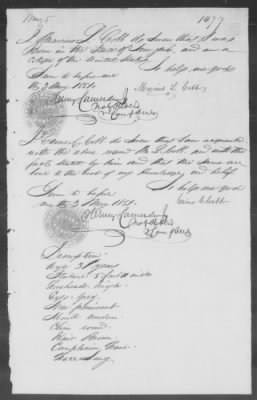 May 5
1477
I Marius L. Cobb do swear that I was
born in the State of New York, and am a
citizen of the United States.
So help me god
Sworn to before me
this 3 May 1851.
Marius L. Cobb
I C. Cobb do swear that I am acquainted
with the above named M. L. Cobb and with the
facts stated by him and that the same are
true to the best of my knowledge and belief
So help me god
Sworn to before
me this 3 May 1851.
Cobb
Description
Age 31 years
Stature 5 feet 10 inches
Forehead high
Eyes Grey
Nose prominent
Mouth medium
Chin round
Hair Brown
Complexion Fair
Face Long